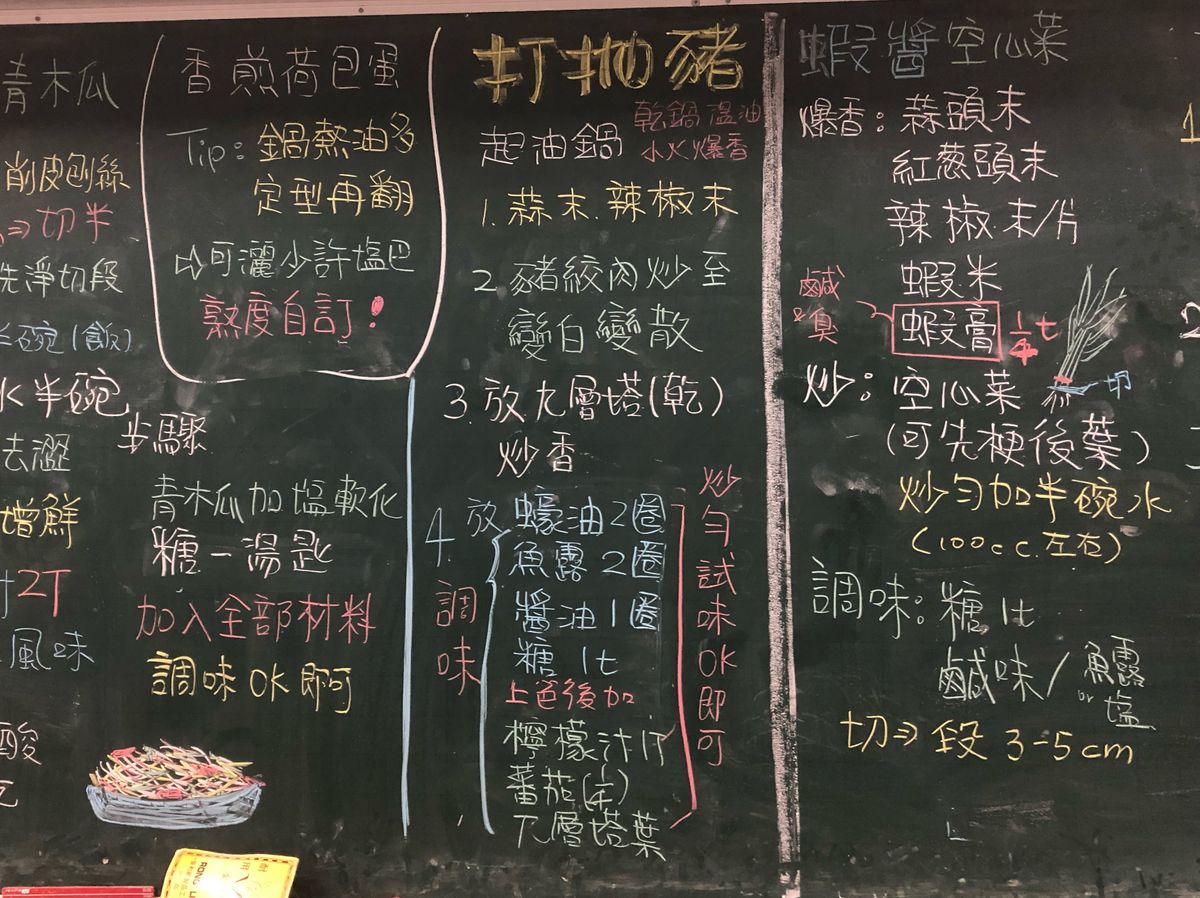 青木瓜
削皮刨絲
⇒切半
洗淨切段
半碗(飯)
水半碗
去澀
增鮮
汁2T
風味
酸
香煎荷包蛋
Tip: 鍋熱油多
定型再翻
⇨可灑少許塩巴
熟度自訂!
步驟
青木瓜加塩軟化
糖一湯匙
加入全部材料
調味OK即可
打拋豬
起油鍋 乾鍋溫油
小火爆香
1. 蒜末.辣椒末
2. 豬絞肉炒至
變白變散
3. 放九層塔(乾)
炒香
4. 放
調味
蠔油2圈
魚露2圈
醬油1圈
糖 1t
上色後加
檸檬汁1T
蕃茄(半)
九層塔葉
炒勻試味OK即可
蝦醬空心菜
爆香: 蒜頭末
紅葱頭末
辣椒末/片
蝦米
鹹&臭 蝦膏 ¼t
炒: 空心菜 切
(可先梗後葉)
炒勻加半碗水
(100c.c.左右)
調味: 糖 1t
鹹味/魚露
or 塩
切⇒段 3-5cm
1
2